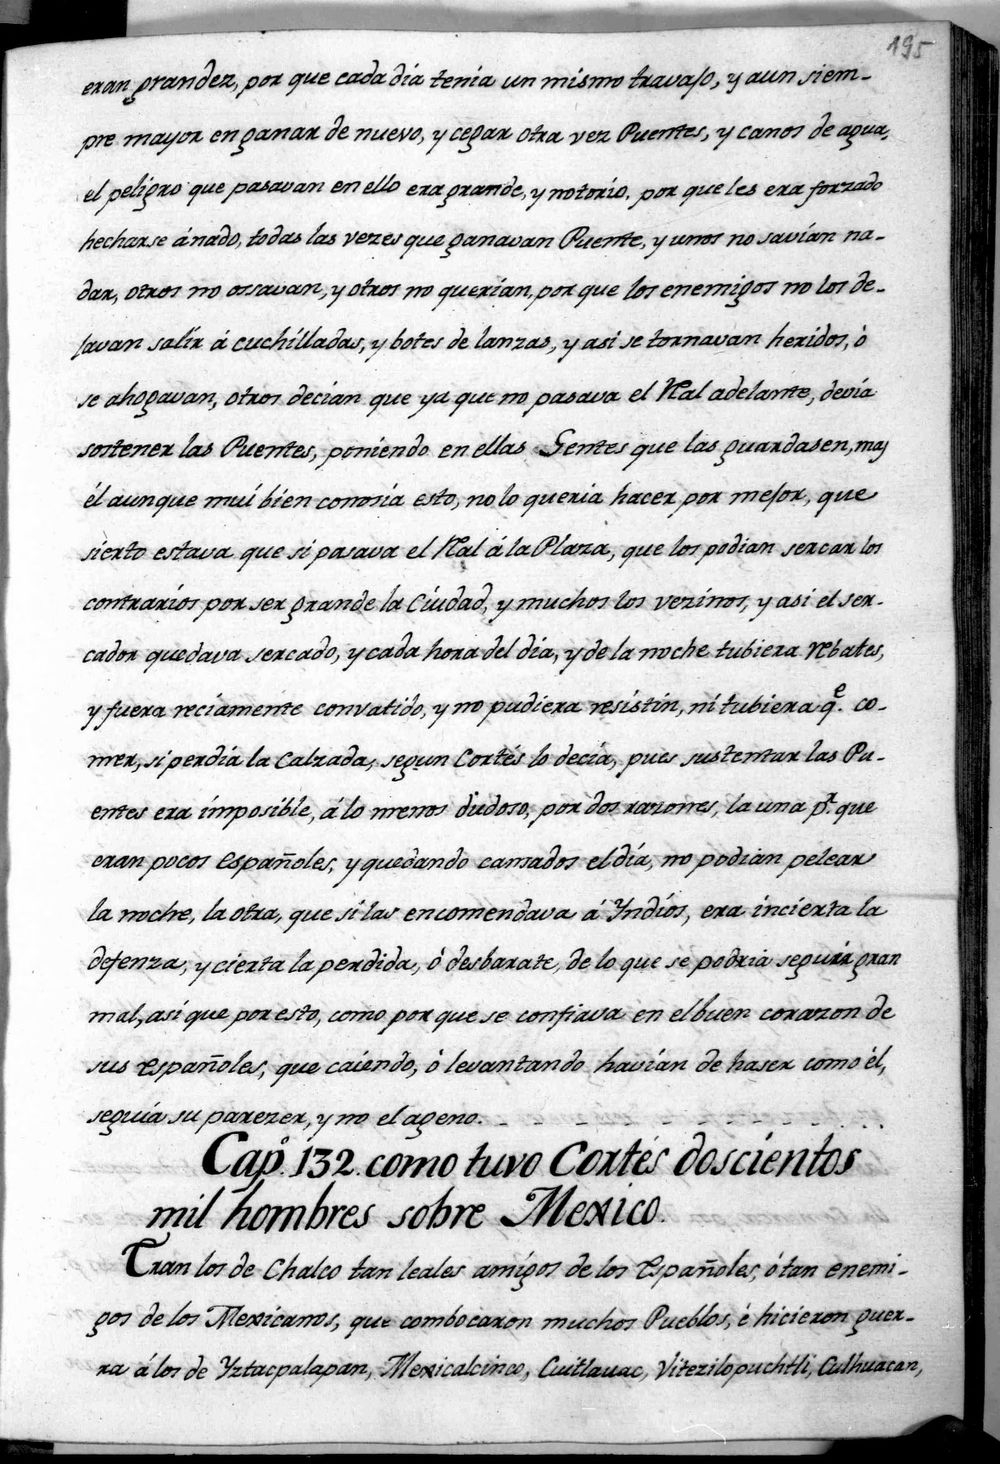 195
eran grandez, por que cada dia tenia un mismo travajo, y aun siem-
pre mayor en ganar de nuevo, y cegar otra vez Puentes, y canos de agua,
el peligro que pasavan en ello era grande, y notorio, por que les era forzado
hecharse ánado, todas las vezes que ganavan Puente, y unos no savian na-
dar, otros no ossavan, y otros no querian, por que los enemigos no los de-
javan salir á cuchilladas, y botes de lanzas, y asi se tornavan heridos, ò
se ahogavan, otros decian que ya que no pasava el Rl adelante, devia
sostener las Puentes, poniendo en ellas Gentes que las guardasen, mas
él aunque muí bien conosia esto, no lo queria hacer por mejor, que
sierto estava que si pasava el Rl á la Plaza, que los podian sercar los
contrarios por ser grande la Ciudad, y muchos los vezinos, y asi el ser-
cador quedava sercado, y cada hora del dia, y de la noche tubiera Rebates,
y fuera reciamente convatido, y no pudiera resistin, ni tubiera q.e co-
mer, si perdia la Calzada, segun Cortés lo decia, pues sustentar las Pu-
entes era imposible, á lo menos dudoso, por dos razones, la una p.r que
eran pocos Españoles, y quedando cansados el dia, no podian pelear
la noche, la otra, que si las encomendava á Yndios, era incierta la
defenza, y cierta la perdida, ò desbarate, de lo que se podria seguir gran
mal, asi que por esto, como por que se confiava en el buen corazon de
sus Españoles, que caiendo, ò levantando havian de haser como él,
seguia su parezer, y no el ageno.
Cap.o 132. como tuvo Cortés doscientos
mil hombres sobre Mexico.
Eran los de Chalco tan leales amigos de los Españoles, ó tan enemi-
gos de los Mexicanos, que combocaron muchos Pueblos, é hicieron guer-
ra á los de Yztacpalapan, Mexicalcinco, Cuitlauac, Vitezilopuchtli, Culhuacan,